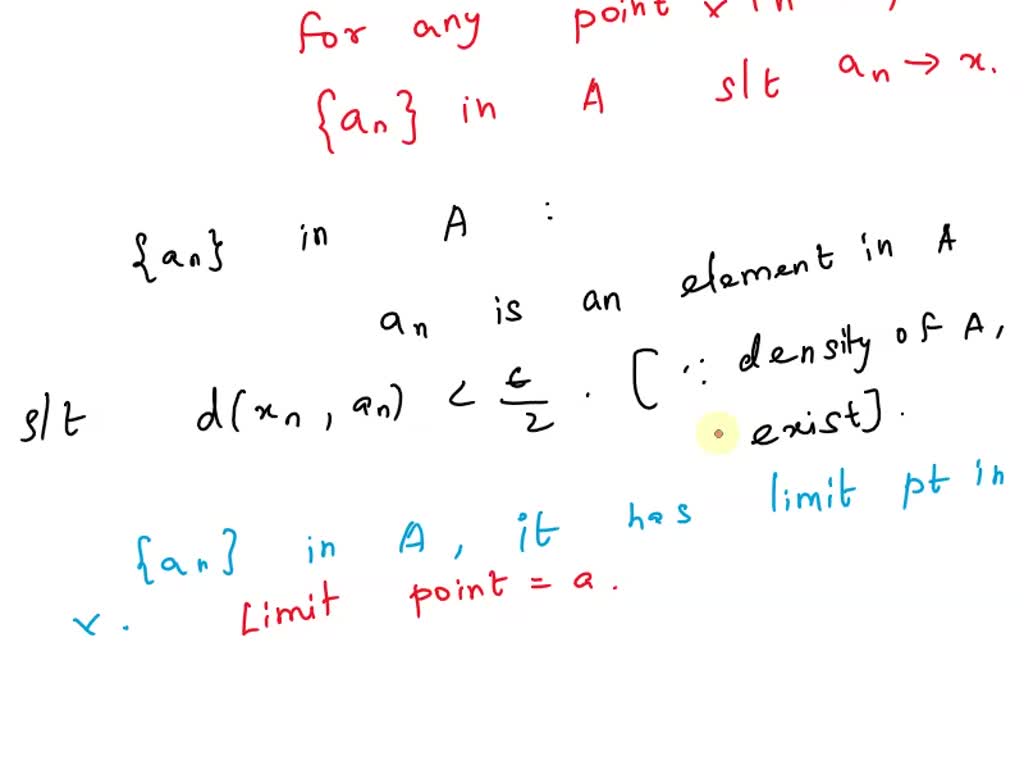 for any point x in
{an} in A s/t an → x.
{an} in A :
an is an element in A
s/t d(xn, an) < ϵ/2 . [∵ density of A,
exist].
{an} in A, it has limit pt in
x. Limit point = a.